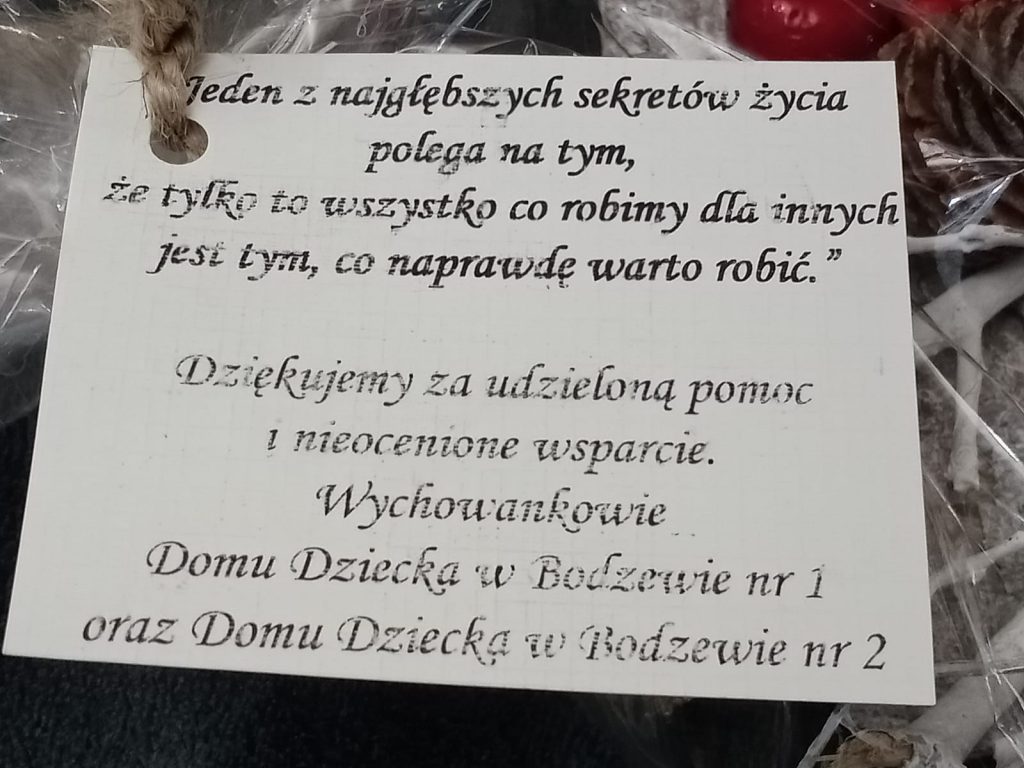 Jeden z najgłębszych sekretów życia
polega na tym,
że tylko to wszystko co robimy dla innych
jest tym, co naprawdę warto robić.”
Dziękujemy za udzieloną pomoc
i nieocenione wsparcie.
Wychowankowie
Domu Dziecka w Bodzewie nr 1
oraz Domu Dziecka w Bodzewie nr 2